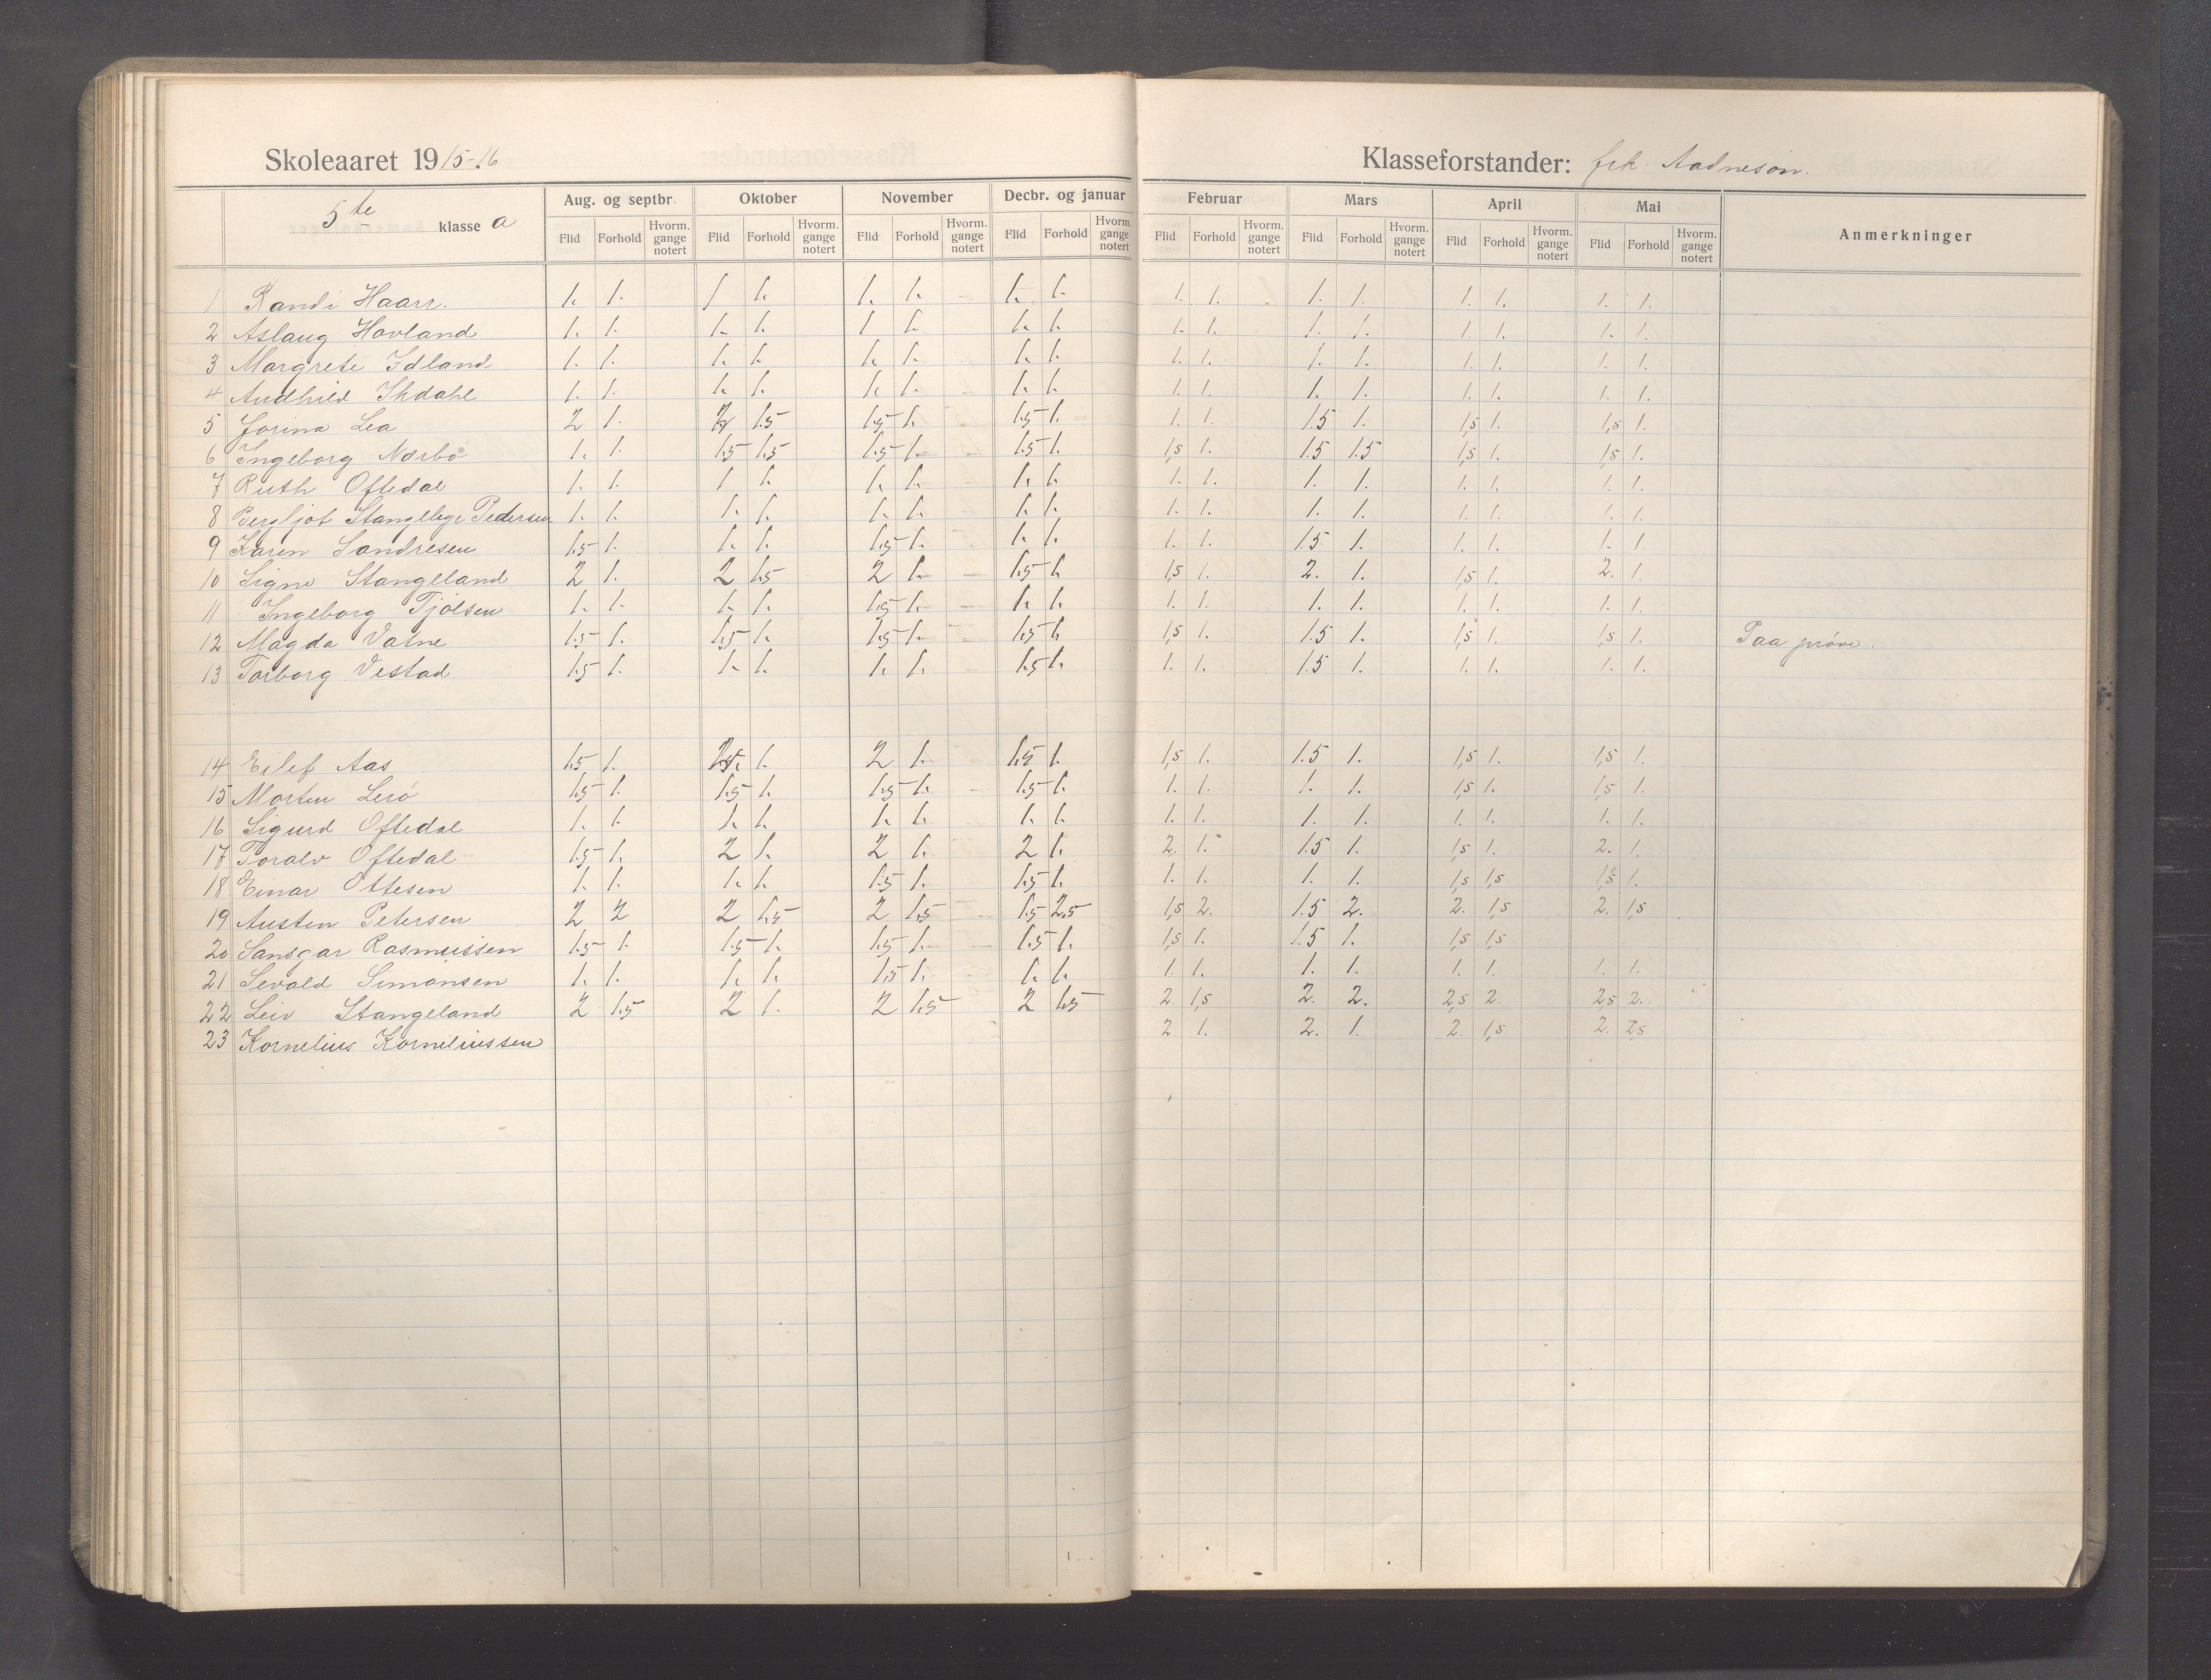 Skoleaaret 1915-16 Klasseforstander: frk. Aadneson.
5te klasse a
Aug. og septbr. Oktober November Decbr. og januar Februar Mars April Mai Anmerkninger
Flid Forhold Hvorm. gange notert Flid Forhold Hvorm. gange notert Flid Forhold Hvorm. gange notert Flid Forhold Hvorm. gange notert Flid Forhold Hvorm. gange notert Flid Forhold Hvorm. gange notert Flid Forhold Hvorm. gange notert Flid Forhold Hvorm. gange notert
1 Randi Haarr. 1. 1. 1 1. 1. 1. 1. 1. 1. 1. 1. 1. 1. 1. 1. 1.
2 Aslaug Hovland 1. 1. 1. 1. 1 1. 1. 1. 1. 1. 1. 1. 1. 1. 1. 1.
3 Margrete Idland 1. 1. 1. 1. 1. 1. 1. 1. 1. 1. 1. 1. 1. 1. 1. 1.
4 Audhild Ikdahl 1. 1. 1. 1. 1. 1. 1. 1. 1. 1. 1. 1. 1. 1. 1. 1.
5 Jorina Lea 2 1. 2 1.5 1.5 1. 1.5 1. 1. 1. 1.5 1. 1,5 1. 1,5 1.
6 Ingeborg Nærbø 1. 1. 1.5 1.5 1.5 1. 1.5 1. 1,5 1. 1.5 1.5 1,5 1. 1,5 1.
7 Ruth Oftedal 1. 1. 1 1. 1. 1. 1. 1. 1. 1. 1. 1. 1. 1. 1. 1.
8 Bergljot Stangeby Pedersen 1. 1. 1. 1. 1. 1. 1. 1. 1. 1. 1. 1. 1. 1. 1. 1.
9 Karen Sandresen 1.5 1. 1. 1. 1.5 1. 1. 1. 1. 1. 1.5 1. 1. 1. 1. 1.
10 Signe Stangeland 2 1. 2 1.5 2 1. 1.5 1. 1,5 1. 2. 1. 1,5 1. 2. 1.
11 Ingeborg Tjølsen 1. 1. 1. 1. 1.5 1. 1. 1. 1. 1. 1. 1. 1. 1. 1. 1.
12 Magda Vatne 1.5 1. 1.5 1. 1.5 1. 1.5 1. 1,5 1. 1.5 1. 1,5 1. 1,5 1. Paa prøve.
13 Torborg Vestad 1.5 1. 1. 1. 1. 1. 1.5 1. 1. 1. 1.5 1. 1. 1. 1. 1.
14 Eilef Aas 1.5 1. 1. 2 1. 1.5 1. 1,5 1. 1.5 1. 1,5 1. 1,5 1.
15 Morten Lerø 1.5 1. 1.5 1. 1.5 1. 1.5 1. 1. 1. 1. 1. 1,5 1. 1,5 1.
16 Sigurd Oftedal 1. 1. 1. 1. 1. 1. 1. 1. 1. 1. 1. 1. 1. 1. 1. 1.
17 Toralv Oftedal 1.5 1. 2 1. 2 1. 2 1. 2. 1. 1.5 1. 1,5 1. 2. 1.
18 Einar Ottesen 1. 1. 1. 1. 1.5 1. 1.5 1. 1. 1. 1. 1. 1,5 1,5 1,5 1.
19 Austen Petersen 2 2 2 1.5 2 1.5 1.5 2.5 1,5 2. 1.5 2. 2. 1,5 2. 1,5
20 Sansgar Rasmussen 1.5 1. 1.5 1. 1.5 1. 1.5 1. 1,5 1. 1.5 1. 1,5 1,5
21 Sevald Simonsen 1. 1. 1. 1. 1.5 1. 1. 1. 1. 1. 1. 1. 1. 1. 1. 1.
22 Leiv Stangeland 2 1.5 2 1. 2 1.5 2 1.5 2. 1,5 2. 2. 2,5 2. 2,5 2.
23 Kornelius Korneliussen 2 1. 2. 1. 2. 1,5 2.